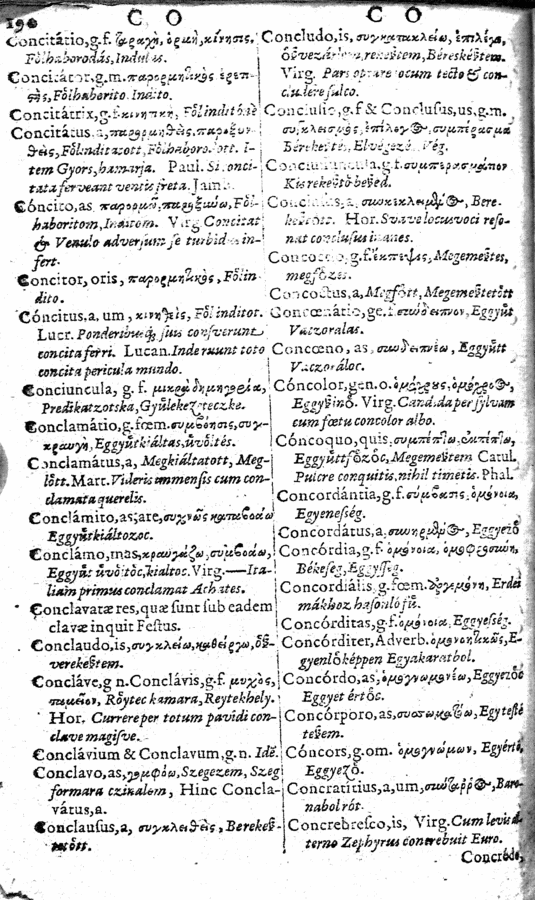 190
C O
C O
Concitatio, g.f. ταραχὴ, ὁρμὴ, κίνησις,
Fòlhaborodás, Indulas.
Concitator, g.m. παρορμητικὸς
Fòlhaborito. Indito.
Concitátrix, g.f. κινητικὴ, Fòlinditóne
Concitátus, a, παρορμηθεὶς, παροξυν-
θεὶς, Fòlinditazott, Fòlhaboro. I-
tem Gyors, hamarja. Paul. Si conci-
tata ferveant ventis freta. Jamb.
Cóncito, as, παρορμῶ, παροξύνω, Fòl-
haboritom, Inditom. Virg Concitat
& Venulo adversum se turbid in-
fert.
Concitor, oris, παρορμητικὸς, Fòlin-
dito.
Cóncitus, a, um, κινηθεὶς, Fòlinditot.
Lucr. Ponderibusq́; suis consuerunt
concita ferri. Lucan. Inde ruunt toto
concita pericula mundo.
Conciuncula, g. f. μικρὰ δημηγορία,
Predikatzotska, Gyülekezeteczke.
Conclamátio, g. fœm. συμβόησις, συγ-
κραυγὴ, Eggyüt kiáltas, üvòltés.
Conclamátus, a, Megkiáltatott, Meg-
lòtt. Mart. Videris immensis cum con-
clamata querelis.
Conclámito, as, are, συχνῶς καταβοάω
Eggyütkiáltozoc.
Conclámo, mas, κραυγάζω, συμβοάω,
Eggyüt üvòltòc, kialtoc. Virg.—Ita-
liam primus conclamat Achates.
Conclavatæ res, quæ sunt sub eadem
clavæ inquit Festus.
Conclaudo, is, συγκλείω, καθείργω,
verekestem.
Concláve, g n. Conclávis, g.f. μυχὸς,
ταμεῖον, Ròytec kamara, Reytekhely.
Hor. Currere per totum pavidi con-
clave magisve.
Conclávium & Conclavum, g.n. Idē.
Conclavo, as, γομφόω, Szegezem, Szeg
formara czinalem, Hinc Concla-
vátus, a.
Conclausus, a, συγκλειθεὶς, Berekes-
tetòtt.
Concludo, is, συγκατακλείω, ἐπιλέγω,
rekestem, Béreskéstem.
Virg. Pars optare locum tecto & con-
cludere sulco.
Conclusio, g.f & Conclusus, us, g.m.
συγκλεισμὸς, ἐπίλογος, συμπέρασμα
Bérekestés, Elvégezés, Vég.
Conclusiuncula, g.f. συμπερασμάτιον
Kis rekestò beszed.
Conclusus, a, Bere-
kestòtt. Hor. Suave locus voci reso-
nat conclusus inanes.
Concoctio, g.f. ἔκπεψις, Megemestes,
megfòzes.
Concoctus, a, Megfòtt, Megemestetòtt
Concœnátio, ge.f. σύνδειπνον, Eggyütt
Vatzoralas.
Concœno, as, συνδειπνέω, Eggyütt
Vaczoráloc.
Cóncolor, gen. o. ὁμόχρους, ὁμόχροος,
Eggyszinò. Virg. Candida per sylvam
cum fœtu concolor albo.
Cóncoquo, quis, συμπέπτω,
Eggyüttfòzòc, Megemestem Catul.
Pulcre conquitis, nihil timetis. Phal.
Concordántia, g.f. σύμβασις, ὁμόνοια,
Egyenesség.
Concordátus, a, Eggyezò
Concórdia, g.f. ὁμόνοια, ὁμοφροσύνη,
Békeseg, Eggysseg.
Concordiális, g. fœm. Erdei
mákhoz hasonló fü.
Concórditas, g.f. ὁμόνοια, Eggyesség.
Concórditer, Adverb. ὁμονοητικῶς, E-
gyenlòképpen Egyakaratbol.
Concórdo, as, ὁμογνωμονέω, Eggyezòc
Eggyet értòc.
Concórporo, as, συσσωματόω, Egytestè
teszem.
Cóncors, g.om. ὁμογνώμων, Egyértò,
Eggyezò.
Concratitius, a, um, Baro-
nabol rót.
Concrebresco, is, Virg. Cum levis al-
terno Zephyrus concrebuit Euro.
Concréde,